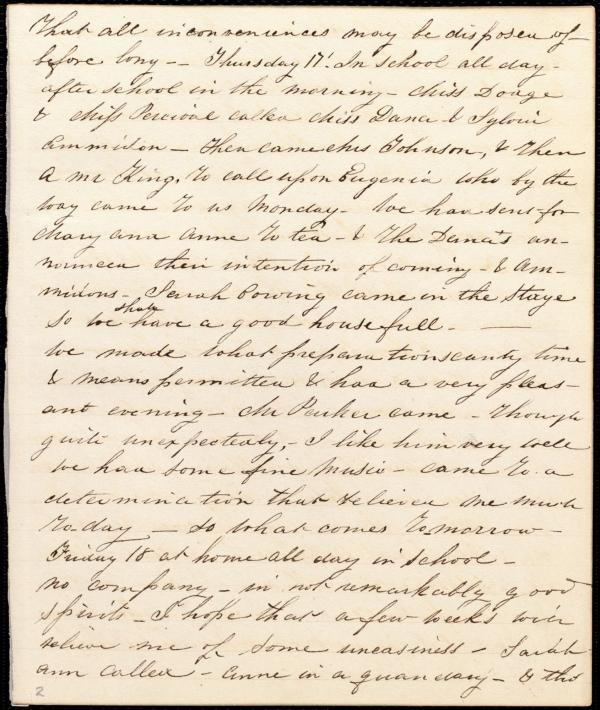 That all inconveniences may be disposed of
before long -- Thursday 17. In school all day -
after school in the morning - Miss Dodge
& Miss Percival called Miss Dana & Sylvia
Ammidon - then came Mrs Johnson, & then
a Mr King, to call upon Eugenia who by the
way came to us Monday - We had sent for
Mary and Anne to tea - & the Dana's an-
nounced their intention of coming - & Am-
midons - Sarah Rowing came in the Stage
so we shall have a good house full -
We made what preparations scanty time
& means permitted & had a very pleas-
ant evening - Mr Parker came - though
quite unexpectedly - I like him very well
We had some fine music - came to a
determination that relieved me much
to-day - so what comes tomorrow -
Friday 18 at home all day in school -
no company - in not remarkably good
spirits - I hope that a few weeks will
relieve me of some uneasiness - Sarah
Ann called - Anne in a quandary - & tho
2